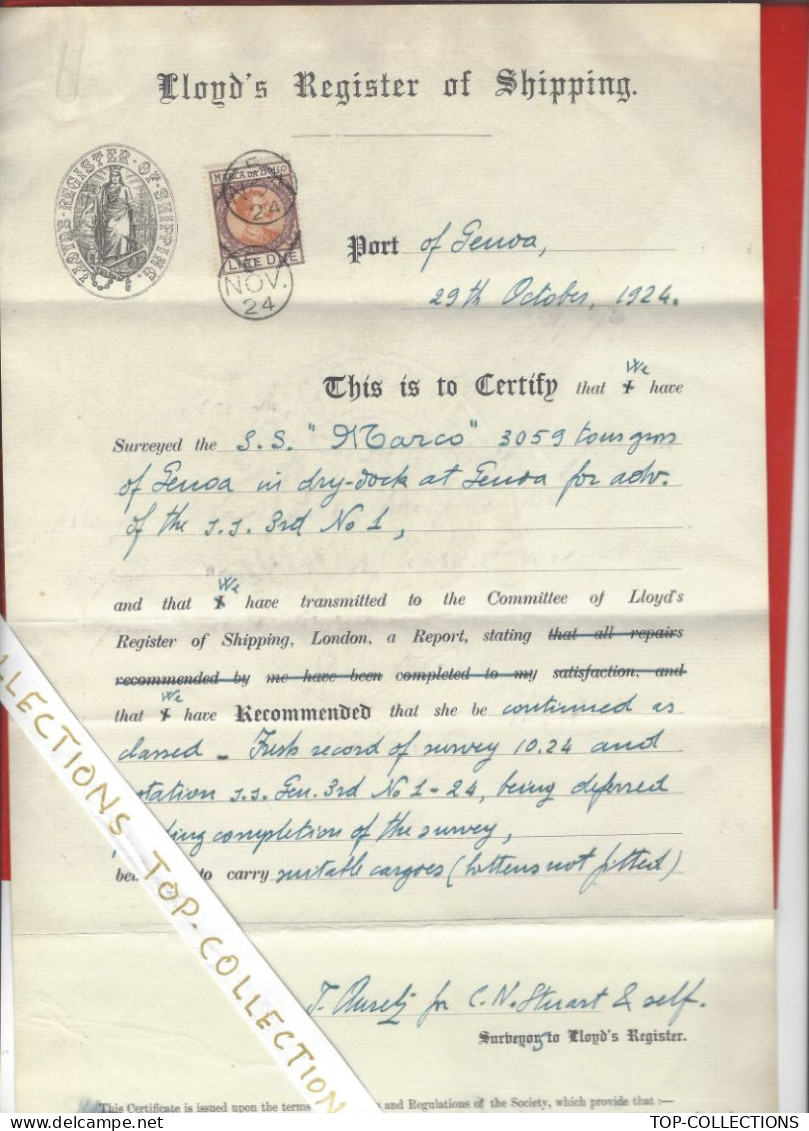 Lloyd's Register of Shipping.
LLOYD'S · REGISTER · OF · SHIPPING.
MARCA DA BOLLO
5
NOV.
24
LIRE DUE
NOV.
24
Port of Genoa,
29th October, 1924.
We
This is to Certify that I have
Surveyed the S.S. "Marco" 3059 tons gross
of Genoa in dry-dock at Genoa for adv.
of the s.s. 3rd No 1,
We
and that I have transmitted to the Committee of Lloyd's
Register of Shipping, London, a Report, stating that all repairs
recommended by me have been completed to my satisfaction, and
We
that I have Recommended that she be continued as
classed - Fresh record of survey 10.24 and
notation s.s. Gen. 3rd No 1-24, being deferred
completion of the survey,
to carry suitable cargoes (battens not fitted)
for C. N. Stuart & self.
Surveyors to Lloyd's Register.
This Certificate is issued upon the terms and Regulations of the Society, which provide that :—
COLLECTIONS TOP-COLLECTIONS
delcampe.net
TOP-COLLECTIONS